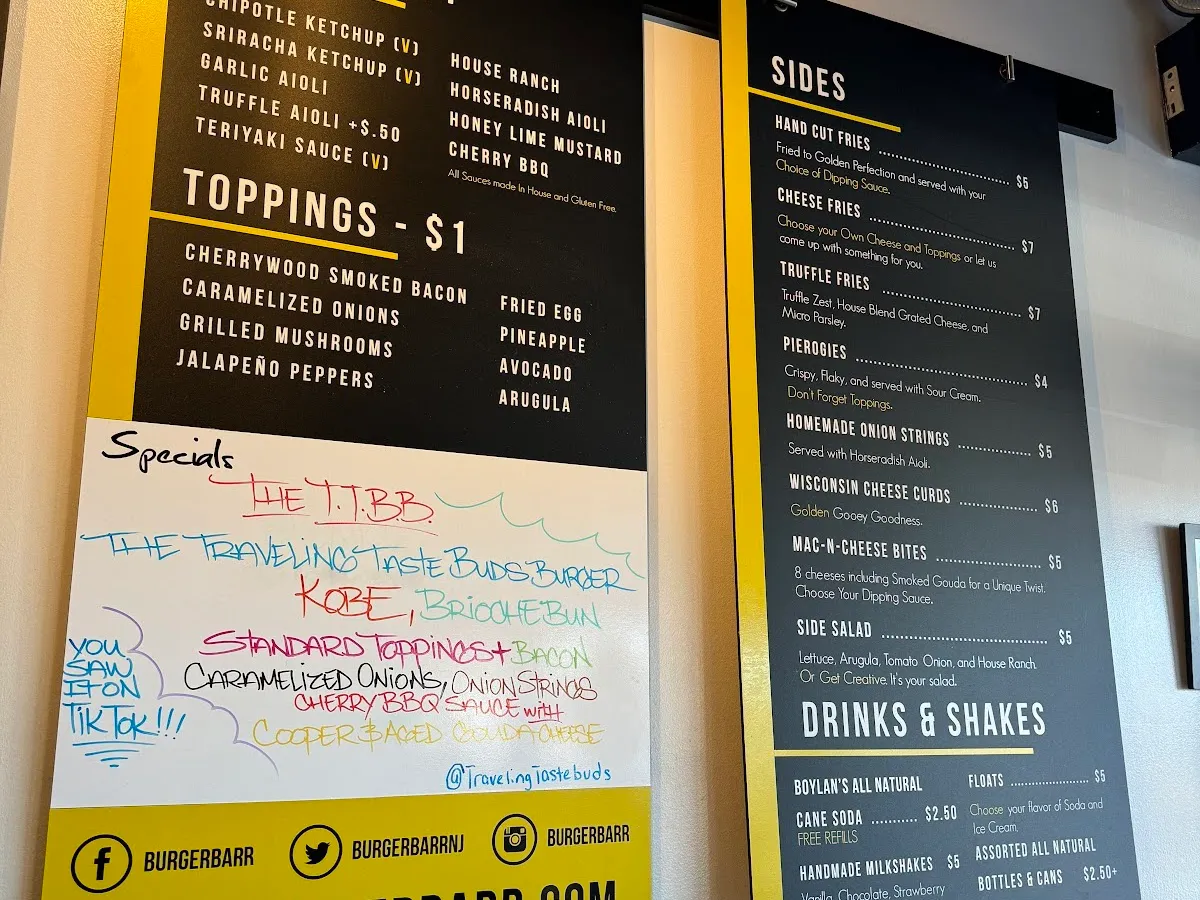 CHIPOTLE KETCHUP (V)
SRIRACHA KETCHUP (V)
GARLIC AIOLI
TRUFFLE AIOLI +$.50
TERIYAKI SAUCE (V)
HOUSE RANCH
HORSERADISH AIOLI
HONEY LIME MUSTARD
CHERRY BBQ
All Sauces made In House and Gluten Free.
TOPPINGS - $1
CHERRYWOOD SMOKED BACON
CARAMELIZED ONIONS
GRILLED MUSHROOMS
JALAPEÑO PEPPERS
FRIED EGG
PINEAPPLE
AVOCADO
ARUGULA
Specials
THE T.T.B.B.
THE TRAVELING TASTE BUDS BURGER
KOBE, BRIOCHE BUN
STANDARD TOPPINGS + BACON
CARAMELIZED ONIONS, ONION STRINGS
CHERRY BBQ SAUCE with
COOPER & AGED GOUDA CHEESE
YOU
SAW
IT ON
TIKTOK!!!
@TravelingTastebuds
BURGERBARR
BURGERBARRNJ
BURGERBARR
SIDES
HAND CUT FRIES .......................... $5
Fried to Golden Perfection and served with your
Choice of Dipping Sauce.
CHEESE FRIES .......................... $7
Choose your Own Cheese and Toppings or let us
come up with something for you.
TRUFFLE FRIES .......................... $7
Truffle Zest, House Blend Grated Cheese, and
Micro Parsley.
PIEROGIES .......................... $4
Crispy, Flaky, and served with Sour Cream.
Don't Forget Toppings.
HOMEMADE ONION STRINGS ............. $5
Served with Horseradish Aioli.
WISCONSIN CHEESE CURDS ............. $6
Golden Gooey Goodness.
MAC-N-CHEESE BITES .................... $5
8 cheeses including Smoked Gouda for a Unique Twist.
Choose Your Dipping Sauce.
SIDE SALAD .......................... $5
Lettuce, Arugula, Tomato Onion, and House Ranch.
Or Get Creative. It's your salad.
DRINKS & SHAKES
BOYLAN'S ALL NATURAL
CANE SODA .......... $2.50
FREE REFILLS
HANDMADE MILKSHAKES $5
Vanilla, Chocolate, Strawberry
FLOATS ...................... $5
Choose your flavor of Soda and
Ice Cream.
ASSORTED ALL NATURAL
BOTTLES & CANS $2.50+